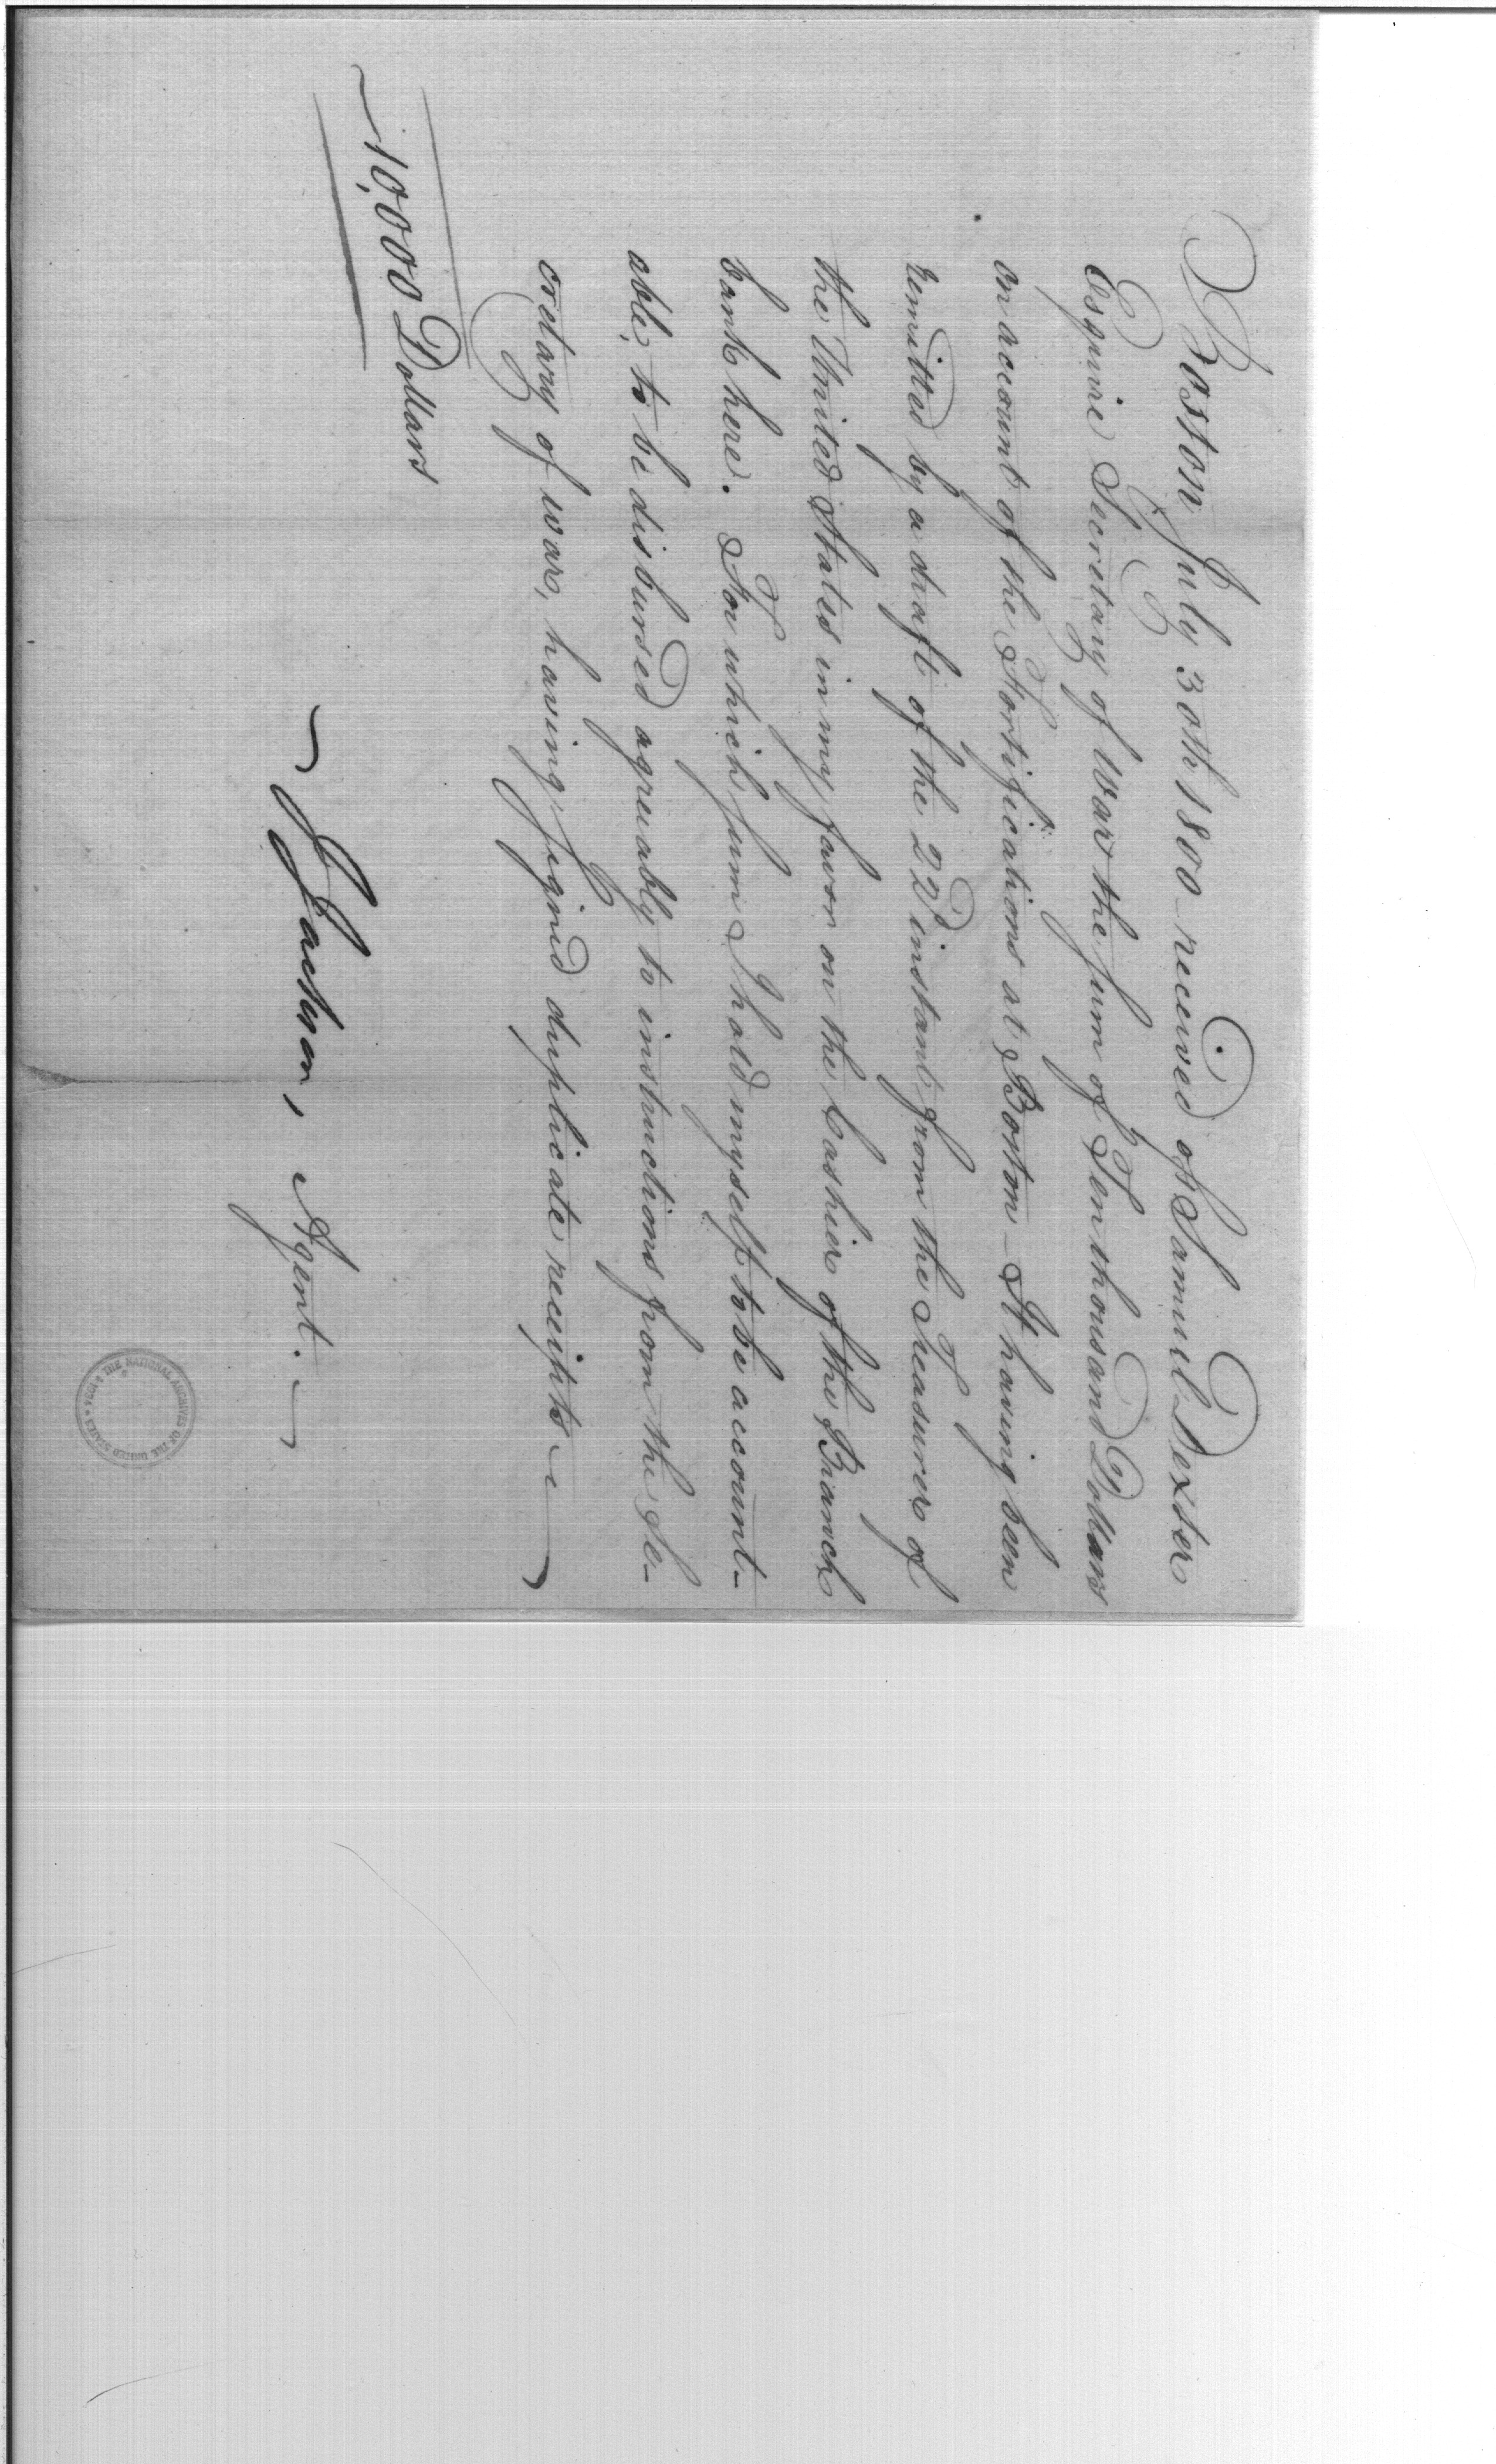 Boston July 30th 1800 received of Samuel Dexter
Esquire Secretary of War the sum of Ten thousand Dollars
on account of the Fortifications at Boston - It having been
remitted by a draft of the 22d instant from the Treasurer of
the United States in my favor on the Cashier of the Branch
bank here. For which sum I hold myself to be account-
able, to be disbursed agreeably to instructions from the Se-
cretary of war, having signed duplicate receipts
10,000 Dollars
J Jackson, Agent.
THE NATIONAL ARCHIVES OF THE UNITED STATES * 1934 *